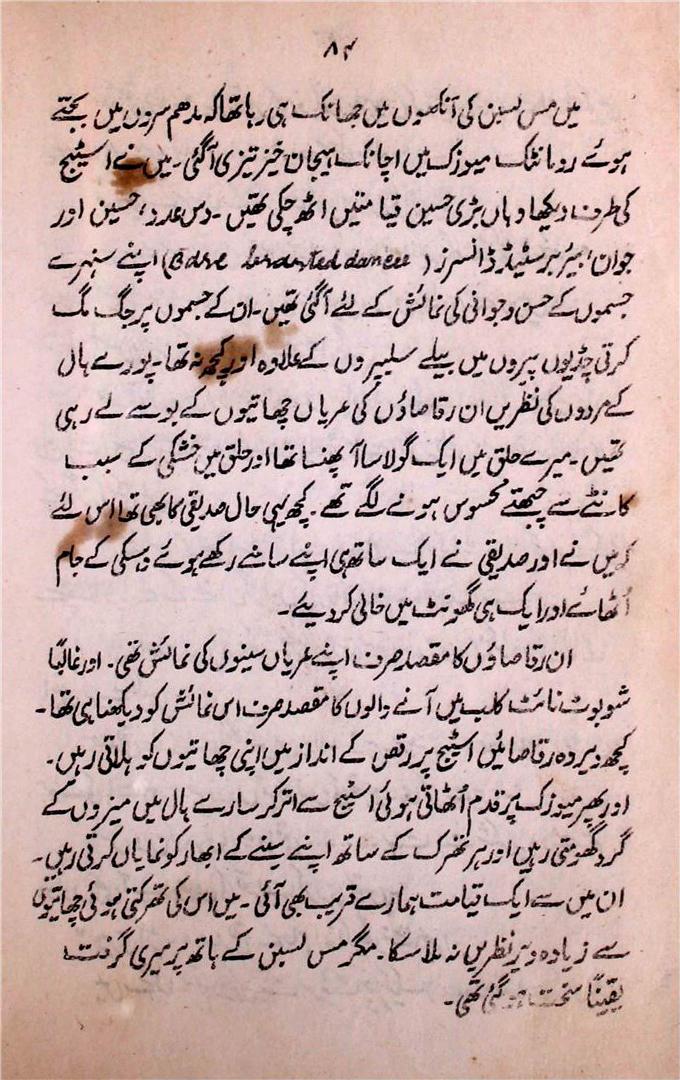 ۸۴
میں مس لسبن کی آنکھوں میں جھانک ہی رہا تھا کہ مدھم سروں میں بجتے
ہوئے رومانٹک میوزک میں اچانک ہیجان خیز تیزی آگئی۔ میں نے اسٹیج
کی طرف دیکھا وہاں بڑی حسین قیامتیں اٹھ چکی تھیں۔ دس عدد، حسین اور
جوان، بیئر برسٹیڈ ڈانسرز (Bare brasted dancee) اپنے سنہرے
جسموں کے حسن و جوانی کی نمائش کے لئے آگئی تھیں۔ ان کے جسموں پر جگ مگ
کرتی چڈیوں پیروں میں بیلے سلیپروں کے علاوہ اور کچھ نہ تھا۔ پورے ہال
کے مردوں کی نظریں ان رقاصاؤں کی عریاں چھاتیوں کے بوسے لے رہی
تھیں۔ میرے حلق میں ایک گولا سا آ پھنسا تھا اور حلق میں خشکی کے سبب
کانٹے سے چبھتے محسوس ہونے لگے تھے۔ کچھ یہی حال صدیقی کا بھی تھا اس لئے
میں نے اور صدیقی نے ایک ساتھ ہی اپنے سامنے رکھے ہوئے وہسکی کے جام
اُٹھائے اور ایک ہی گھونٹ میں خالی کر دیئے۔
ان رقاصاؤں کا مقصد صرف اپنے عریاں سینوں کی نمائش تھی۔ اور غالباً
شوبوٹ نائٹ کلب میں آنے والوں کا مقصد صرف اس نمائش کو دیکھنا ہی تھا۔
کچھ دیر وہ رقاصائیں اسٹیج پر رقص کے انداز میں اپنی چھاتیوں کو ہلاتی رہیں۔
اور پھر میوزک پر قدم اُٹھاتی ہوئی اسٹیج سے اتر کر سارے ہال میں میزوں کے
گرد گھومتی رہیں اور ہر تھرک کے ساتھ اپنے سینے کے ابھار کو نمایاں کرتی رہیں۔
ان میں سے ایک قیامت ہمارے قریب بھی آئی۔ میں اس کی تھرکتی ہوئی چھاتیوں
سے زیادہ دیر نظریں نہ ملا سکا۔ مگر مس لسبن کے ہاتھ پر میری گرفت
یقیناً سخت ہو گئی تھی۔